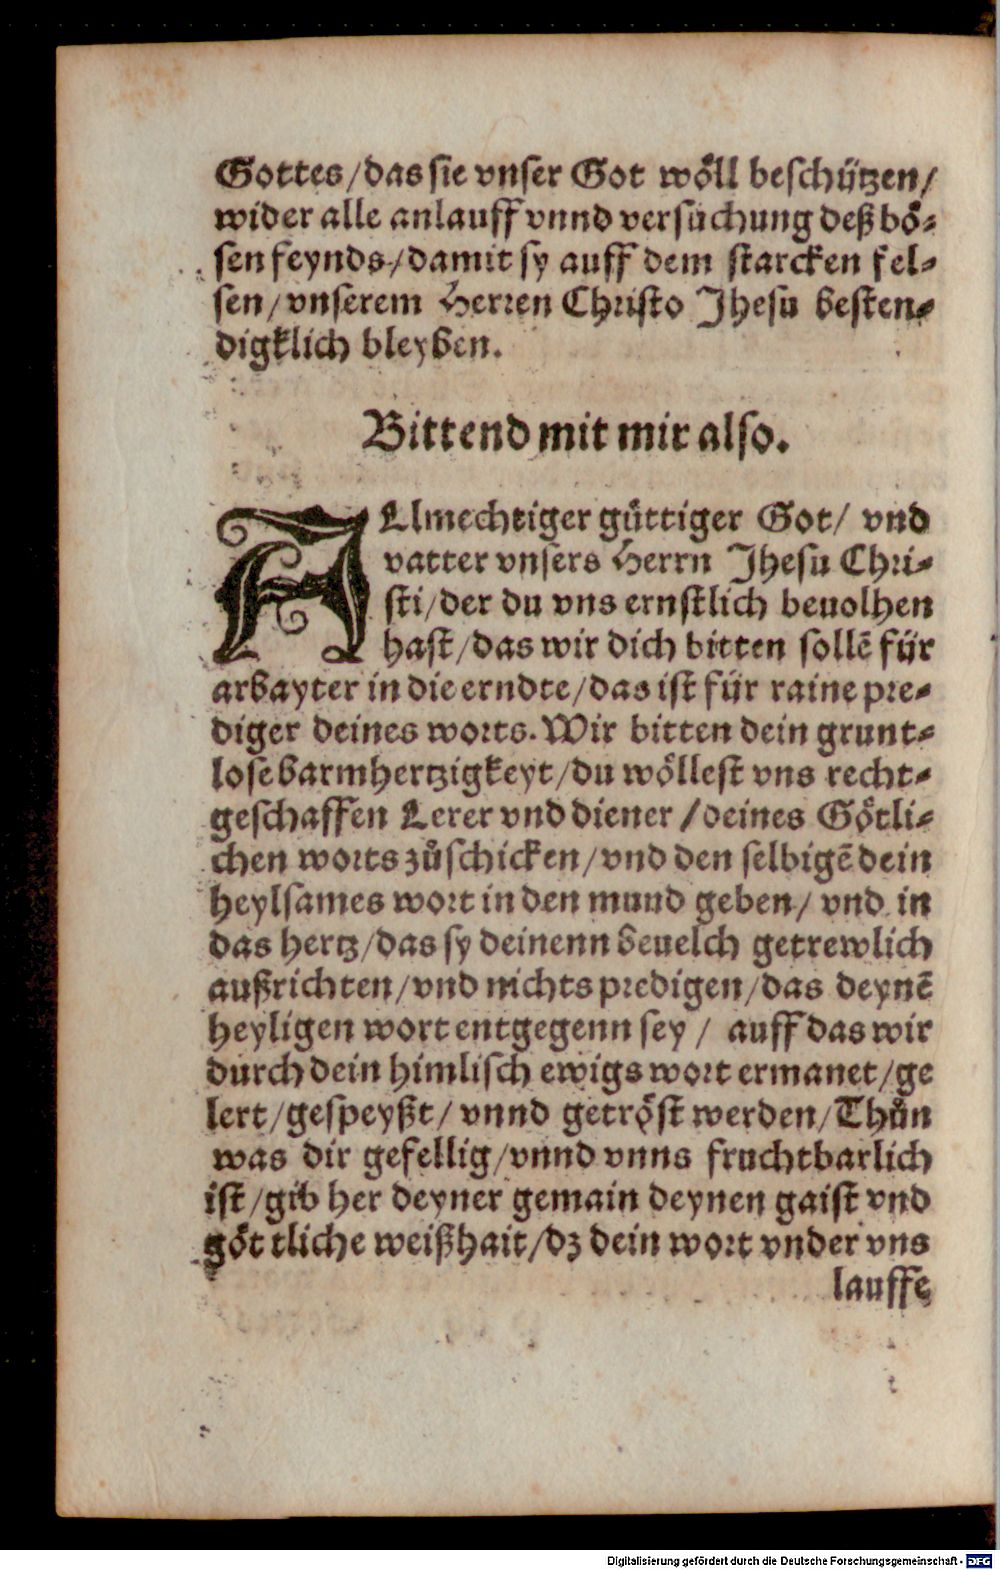 Gottes/das sie vnser Got wöll beschützen/
wider alle anlauff vnnd versuchung deß bö-
sen feynds/damit sy auff dem starcken fel-
sen/vnserem Herren Christo Jhesu besten-
digklich bleyben.
Bittend mit mir also.
ALmechtiger gůttiger Got/ vnd
vatter vnsers Herrn Jhesu Chri-
sti/der du vns ernstlich beuolhen
hast/das wir dich bitten sollē für
arbayter in die erndte/das ist für raine pre-
diger deines worts. Wir bitten dein grunt-
lose barmhertzigkeyt/du wöllest vns recht-
geschaffen Lerer vnd diener/deines Götli-
chen worts zůschicken/vnd den selbigē dein
heylsames wort in den mund geben/ vnd in
das hertz/das sy deinenn beuelch getrewlich
außrichten/vnd nichts predigen/das deynē
heyligen wort entgegenn sey/ auff das wir
durch dein himlisch ewigs wort ermanet/ge
lert/gespeyßt/ vnnd getröst werden/Thůn
was dir gefellig/vnnd vnns fruchtbarlich
ist/gib her deyner gemain deynen gaist vnd
göttliche weißhait/dz dein wort vnder vns
lauffe
Digitalisierung gefördert durch die Deutsche Forschungsgemeinschaft - DFG